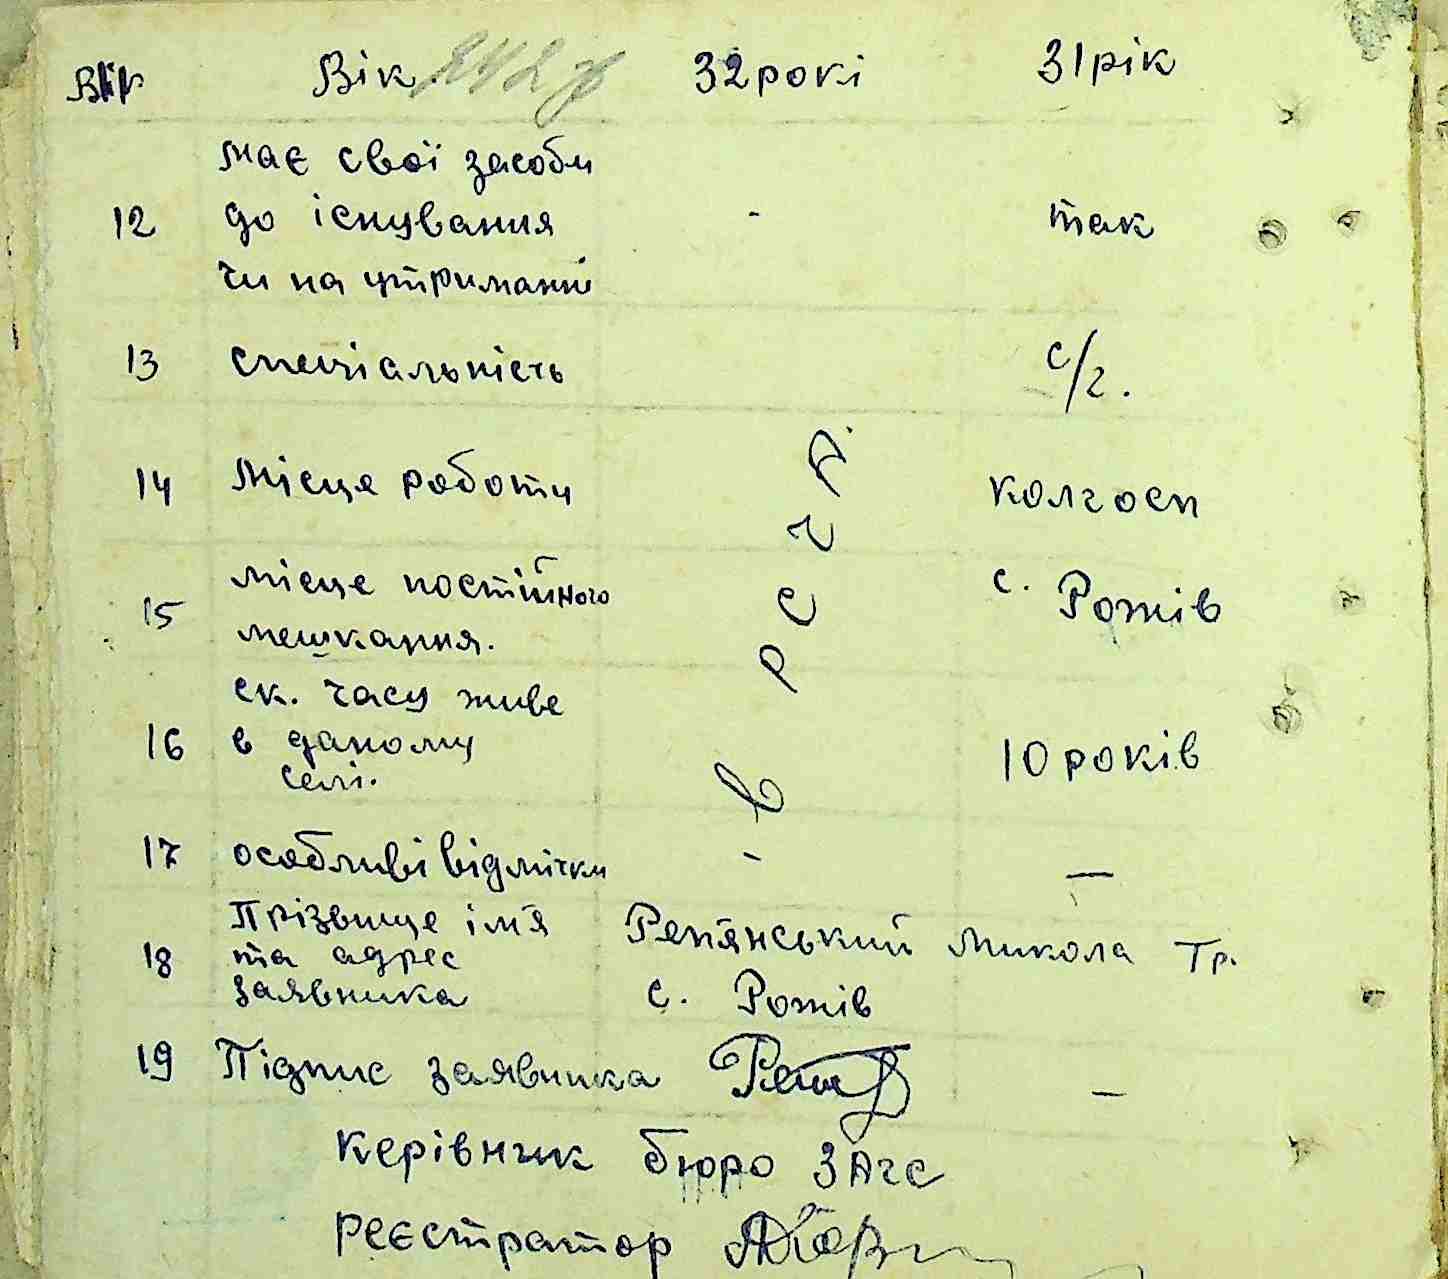 Вік Вік 32 рокі 31 рік
має свої засоби
12 до існування - так
чи на утриманні
13 спеціальність с/г.
14 Місце роботи колгосп
15 місце постійного с. Рожів
мешкання.
ск. часу живе
16 в даному 10 років
селі.
в Р С Ч А.
17 особливі відмічки - —
Прізвище ім'я Реп'янський Микола Тр.
18 та адрес
заявника с. Рожів
19 Підпис заявника —
Керівник бюро ЗАГС
Реєстратор